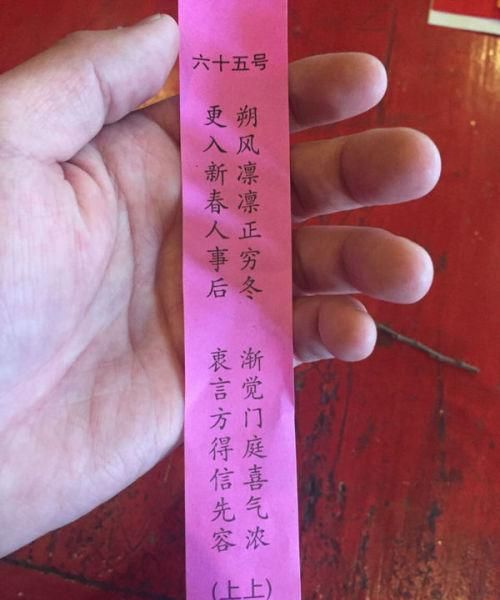 六十五号
朔风凛凛正穷冬
渐觉门庭喜气浓
更入新春人事后
衷言方得信先容
(上上)